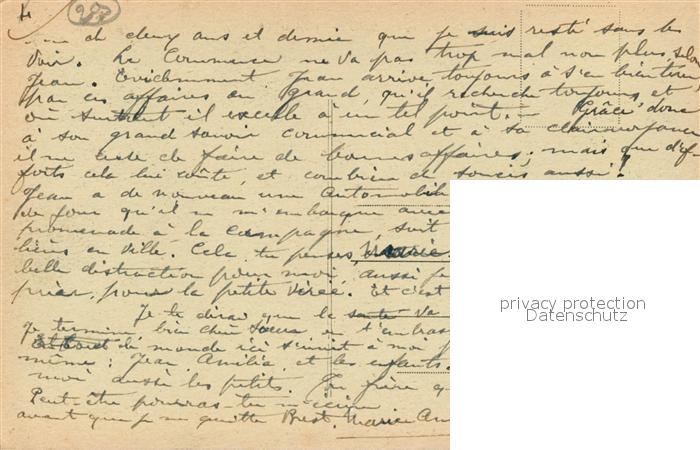 4
... de deux ans et demie que je suis resté sans les
voir. Le Commerce ne va pas trop mal non plus, selon
Jean. Evidemment Jean arrive toujours à s'en bien tirer
par ces affaires en grand, qu'il recherche toujours et
où surtout il excelle à un tel point. – Grâce donc
à son grand savoir commercial et à sa clairvoyance
il ne cesse de faire de bonnes affaires; mais que d'ef
forts cela lui coûte, et combien de soucis aussi!
Jean a de nouveau une automobile
de jour qu'il ne m'embarque avec
promenade à la campagne, soit
liers en ville. Cela, tu penses, Marie
belle distraction pour moi, aussi je
prier, pour la petite virée. Et c'est
Je te dirai que la santé va
Je termine bien chère soeur en t'embras
Et tout le monde ici s'unit à moi
même: Jean, Amélia, et les enfants.
moi aussi les petits. Ton frère q
Peut-être pourras-tu m'écrire
avant que je ne quitte Brest. Marie An
privacy protection
Datenschutz